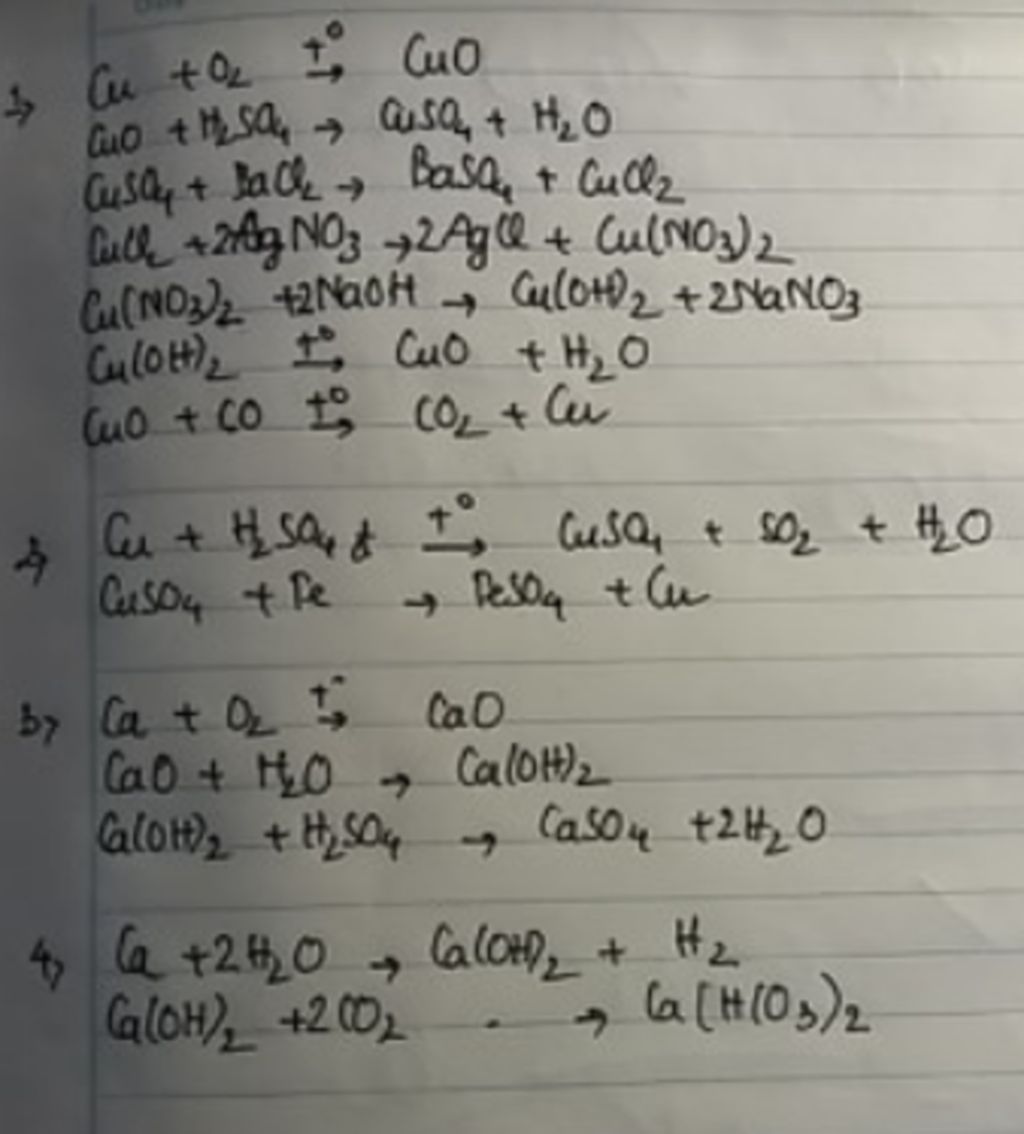 1, Cu + O₂ t°→ CuO
CuO + H₂SO₄ → CuSO₄ + H₂O
CuSO₄ + BaCl₂ → BaSO₄ + CuCl₂
CuCl₂ + 2AgNO₃ → 2AgCl + Cu(NO₃)₂
Cu(NO₃)₂ + 2NaOH → Cu(OH)₂ + 2NaNO₃
Cu(OH)₂ t°→ CuO + H₂O
CuO + CO t°→ CO₂ + Cu
2, Cu + H₂SO₄ đ t°→ CuSO₄ + SO₂ + H₂O
CuSO₄ + Fe → FeSO₄ + Cu
3, Ca + O₂ t°→ CaO
CaO + H₂O → Ca(OH)₂
Ca(OH)₂ + H₂SO₄ → CaSO₄ + 2H₂O
4, Ca + 2H₂O → Ca(OH)₂ + H₂
Ca(OH)₂ + 2CO₂ → Ca(HCO₃)₂